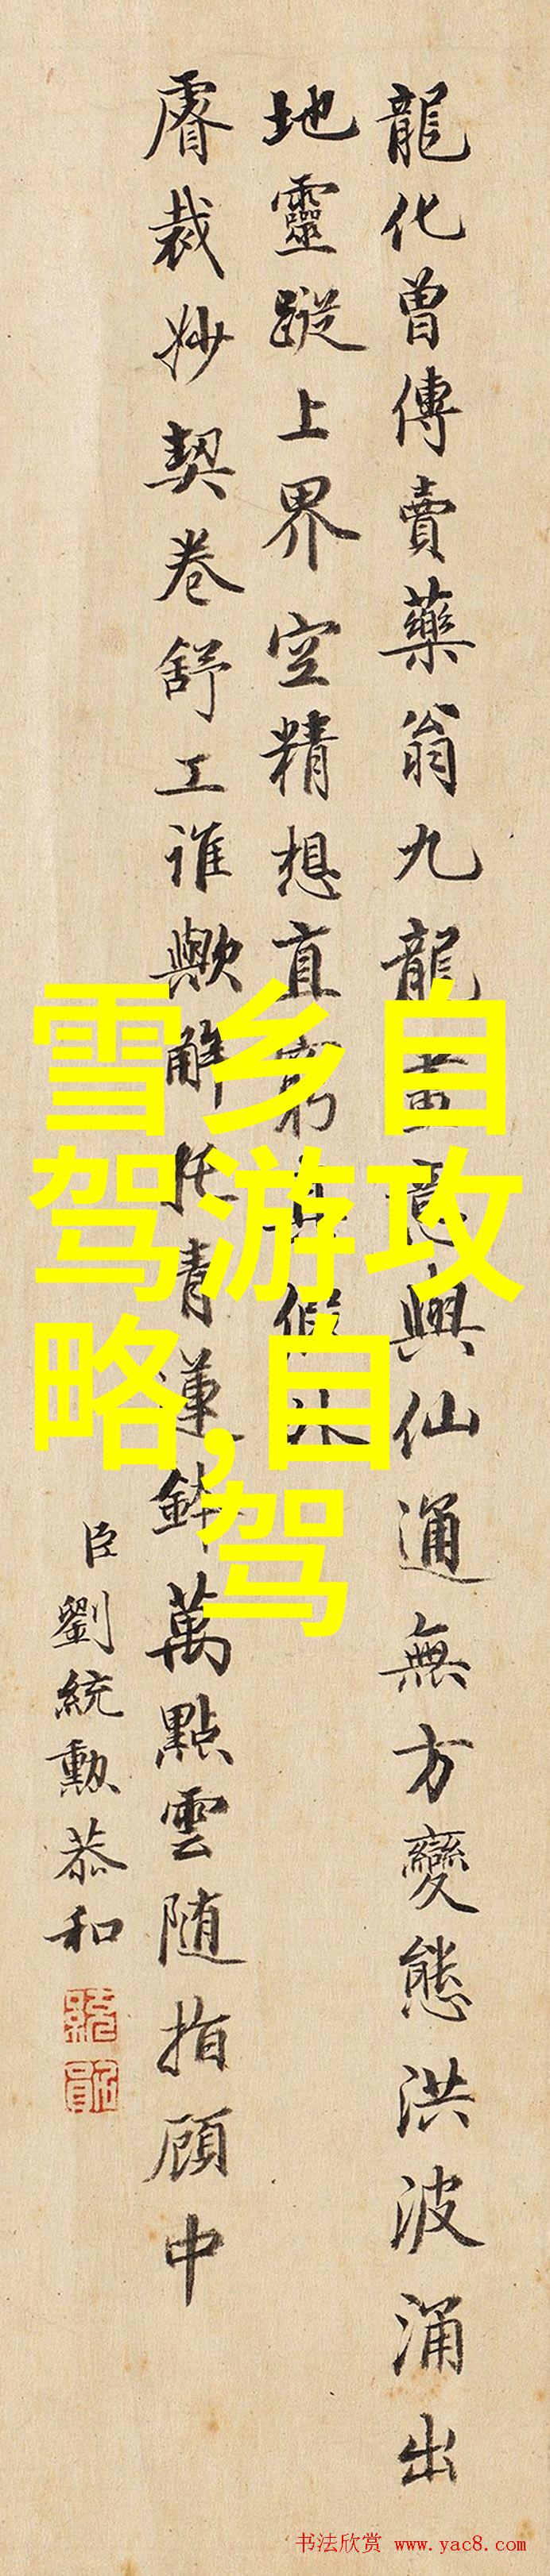 龍化曾傳賣藥翁九龍畫意與仙通無方變態洪波涌出
地靈蹤上界空精想直窮真假
睿裁妙契卷舒工誰歟解作青蓮鉢萬點雲隨指顧中
臣劉統勳恭和
雪乡自
驾游攻
略,自
驾
书法欣赏 www.yac8.com